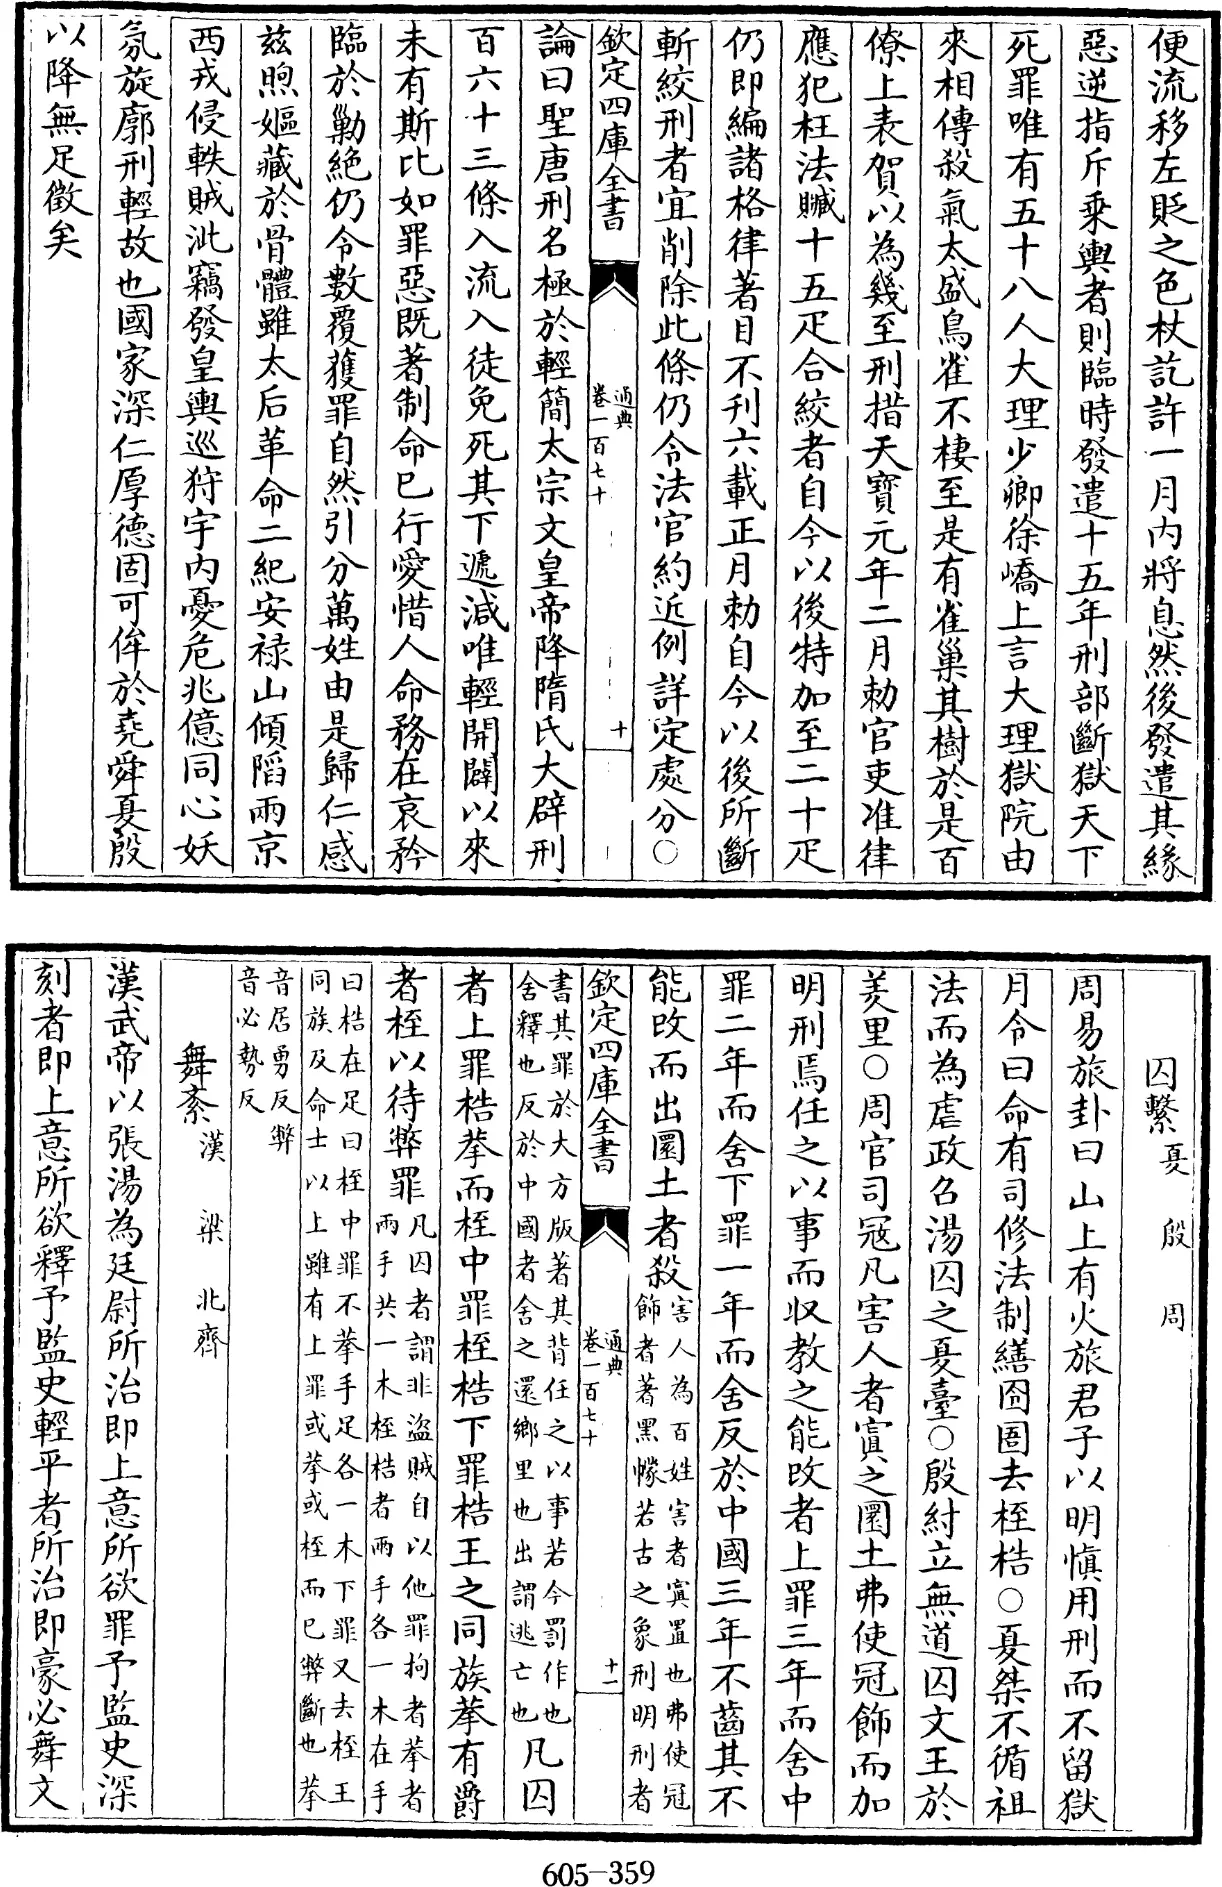 便流移左貶之色杖訖許一月内將息然後發遣其緣
惡逆指斥乗輿者則臨時發遣十五年刑部斷獄天下
死罪唯有五十八人大理少卿徐嶠上言大理獄院由
來相傳殺氣太盛鳥雀不棲至是有雀巢其樹於是百
僚上表賀以為幾至刑措天寳元年二月勅官吏准律
應犯枉法贓十五疋合絞者自今以後特加至二十疋
仍即編諸格律著目不刊六載正月勅自今以後所斷
斬絞刑者宜削除此條仍令法官約近例詳定處分○
欽定四庫全書
通典
卷一百七十
十
論曰聖唐刑名極於輕簡太宗文皇帝降隋氏大辟刑
百六十三條入流入徒免死其下遞減唯輕開闢以來
未有斯比如罪惡既著制命已行愛惜人命務在哀矜
臨於勦絶仍令數覆獲罪自然引分萬姓由是歸仁感
兹喣嫗藏於骨體雖太后革命二紀安禄山傾䧟兩京
西戎侵軼賊泚竊發皇輿巡狩宇内憂危兆億同心妖
氛旋廓刑輕故也國家深仁厚德固可侔於堯舜夏殷
以降無足徵矣
囚繫夏 殷 周
周易旅卦曰山上有火旅君子以明慎用刑而不留獄
月令曰命有司修法制繕囹圄去桎梏○夏桀不循祖
法而為虐政召湯囚之夏臺○殷紂立無道囚文王於
羑里○周官司冦凡害人者寘之圜土弗使冠飾而加
明刑焉任之以事而収教之能改者上罪三年而舍中
罪二年而舍下罪一年而舍反於中國三年不齒其不
能改而出圜土者殺害人為百姓害者寘置也弗使冠
飾者著黑幪若古之象刑明刑者
欽定四庫全書
通典
卷一百七十
十一
書其罪於大方版著其背任之以事若今罰作也
舍釋也反於中國者舍之還鄉里也出謂逃亡也凡囚
者上罪梏拲而桎中罪桎梏下罪梏王之同族拲有爵
者桎以待弊罪凡囚者謂非盜賊自以他罪拘者拲者
兩手共一木桎梏者兩手各一木在手
曰梏在足曰桎中罪不拲手足各一木下罪又去桎王
同族及命士以上雖有上罪或拲或桎而已弊斷也拲
音居勇反弊
音必勢反
舞紊漢 梁 北齊
漢武帝以張湯為廷尉所治即上意所欲罪予監史深
刻者即上意所欲釋予監史輕平者所治即豪必舞文
605-359